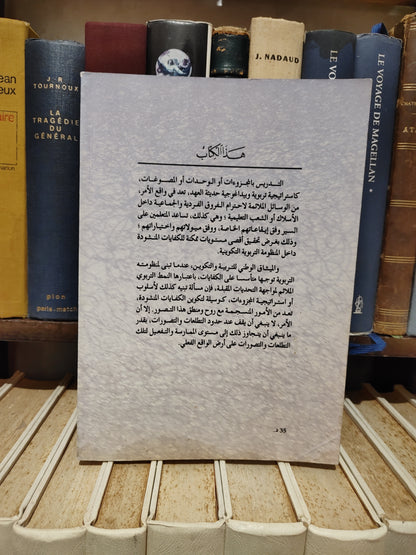 هذا الكتاب
التدريس بالمجزوءات أو الوحدات أو المصوغات،
كاستراتيجية تربوية وبيداغوجية حديثة العهد، تعد في واقع الأمر،
من الوسائل الملائمة لاحترام الفروق الفردية والجماعية داخل
الأسلاك أو الشعب التعليمية ؛ وهي كذلك، تساعد المتعلمين على
السير وفق إيقاعاتهم الخاصة، ووفق ميولاتهم واختياراتهم ؛
وذلك بغرض تحقيق أقصى مستويات ممكنة للكفايات المنشودة
داخل المنظومة التربوية التكوينية.
والميثاق الوطني للتربية والتكوين، عندما تبنى لمنظومته
التربوية توجها متأسسا على الكفايات، باعتبارها النمط التربوي
الملائم لمواجهة التحديات المقبلة، فإن مسألة تبنيه كذلك لأسلوب
أو استراتيجية المجزوءات، كوسيلة لتكوين الكفايات المنشودة،
تعد من الأمور المنسجمة مع روح ومنطق هذا التصور. إلا أن
الأمر، لا ينبغي أن يقف عند حدود التطلعات والتصورات، بقدر
ما ينبغي أن يتجاوز ذلك إلى مستوى الممارسة والتفعيل لتلك
التطلعات والتصورات على أرض الواقع الفعلي.
35 د.
J.-R
TOURNOUX
LA
TRAGÉDIE
DU
GÉNÉRAL
plon
paris-match
J. NADAUD
LE VOYAGE DE MAGELLAN
LE VOYAGE DE MAGELLAN